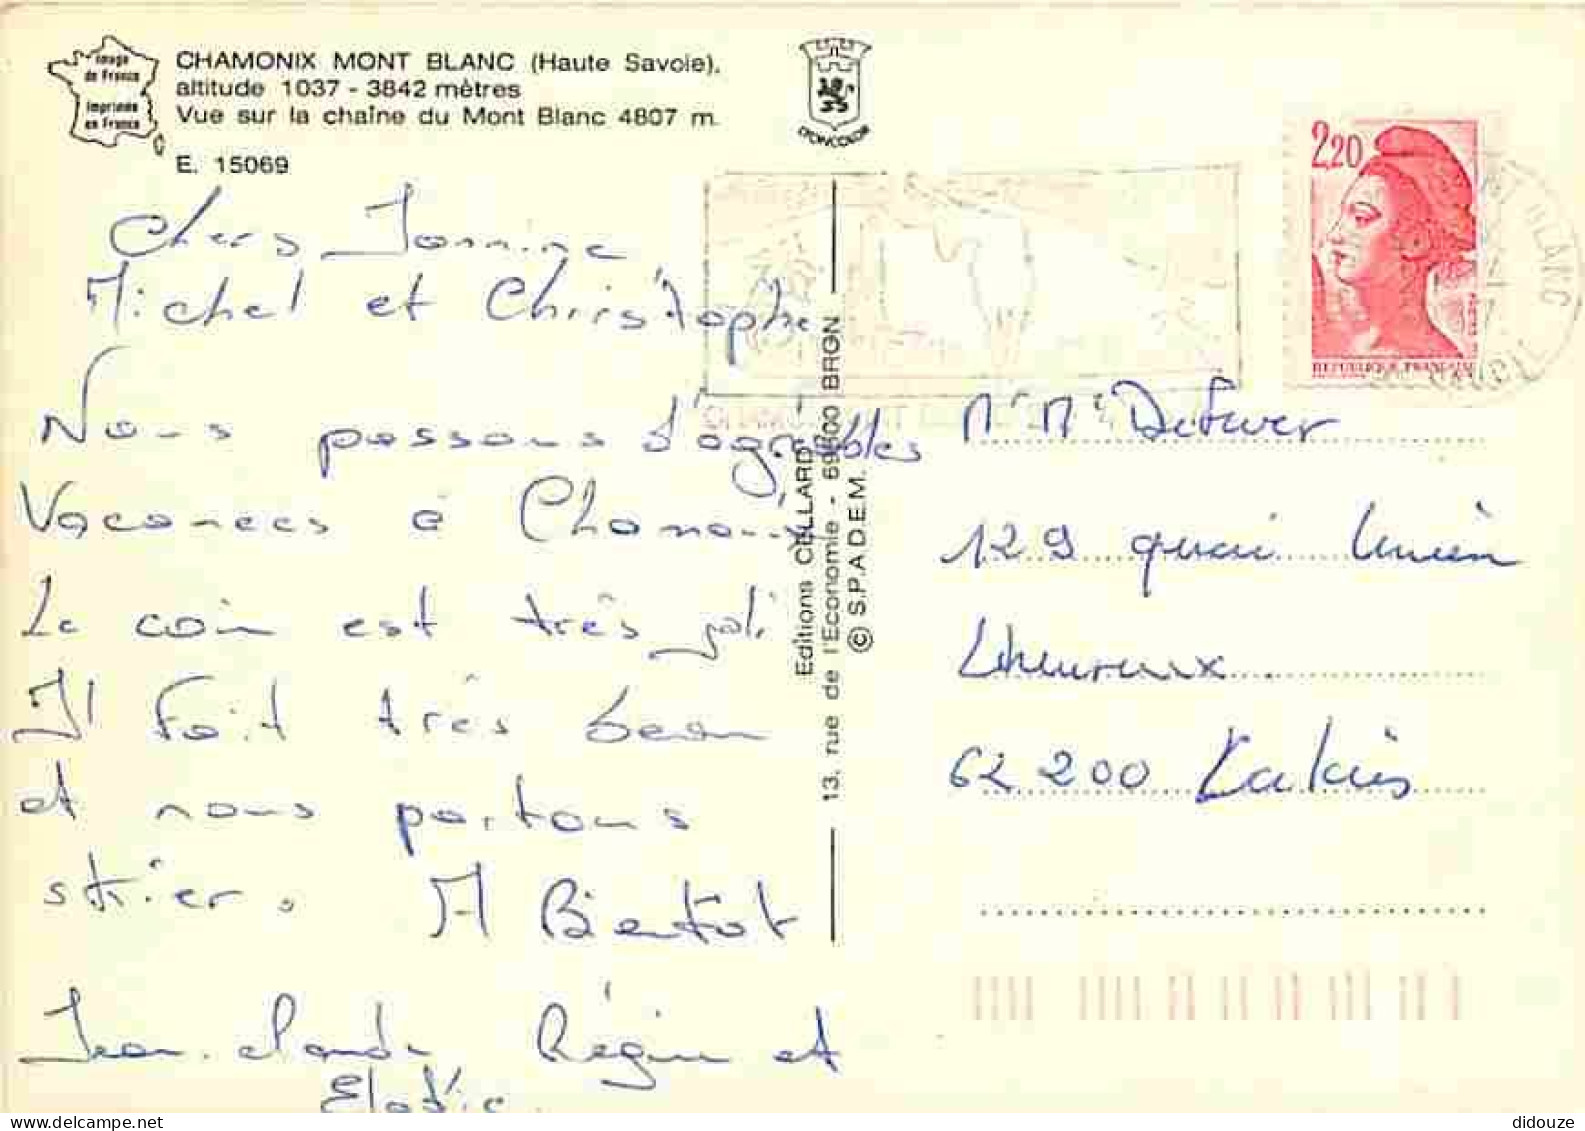 Image
de France
Imprimée
en France
CHAMONIX MONT BLANC (Haute Savoie).
altitude 1037 - 3842 mètres
Vue sur la chaîne du Mont Blanc 4807 m.
E. 15069
LYONCOLOR
2,20
REPUBLIQUE FRANÇAISE
MONT BLANC
Chers Jannine
Michel et Christophe
Nous passons d'agréables
Vacances à Chamonix
Le coin est très joli
Il fait très beau
et nous partons
skier.
A Bientot
Jean-claude, Régine et
Elodie.
Editions CELLARD
13, rue de l'Economie - 69500 BRON
© S.P.A.D.E.M.
129 quai
Lheureux
62 200
didouze